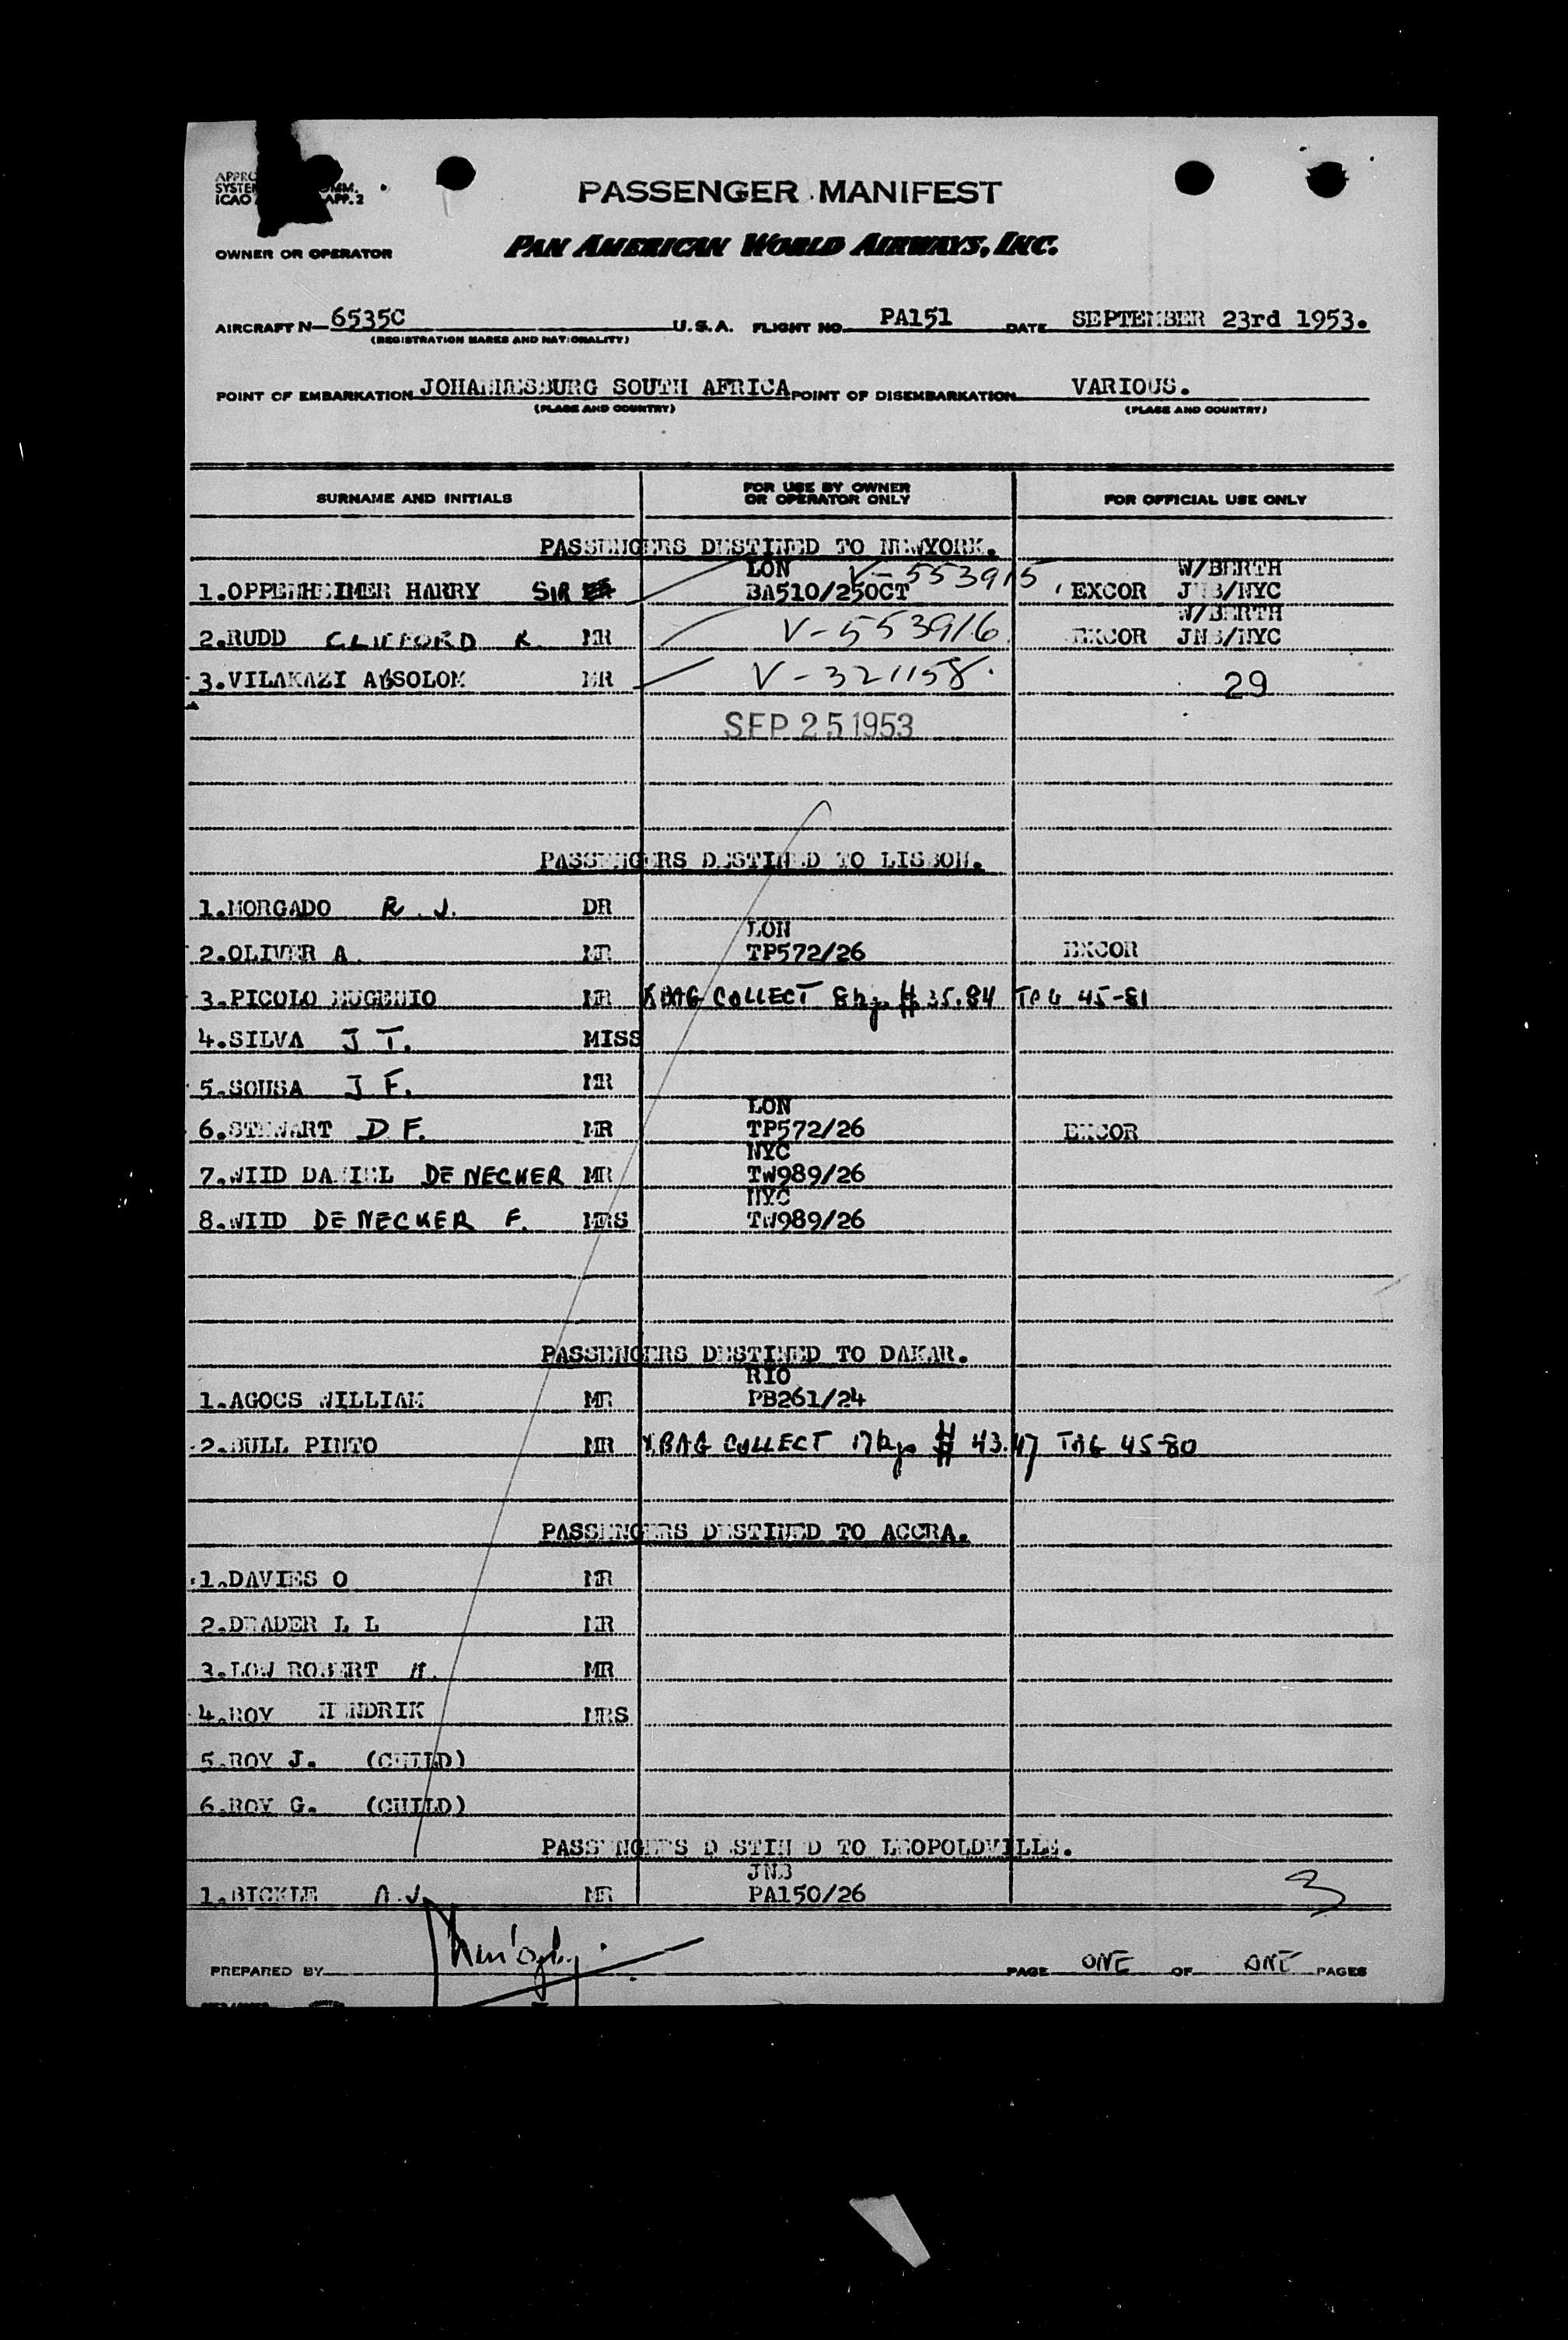 PASSENGER MANIFEST
OWNER OR OPERATOR
PAN AMERICAN WORLD AIRWAYS, INC.
AIRCRAFT N— 6535C U.S.A. FLIGHT NO. PA151 DATE SEPTEMBER 23rd 1953.
(REGISTRATION MARKS AND NATIONALITY)
POINT OF EMBARKATION JOHANNESBURG SOUTH AFRICA POINT OF DISEMBARKATION VARIOUS.
(PLACE AND COUNTRY) (PLACE AND COUNTRY)
SURNAME AND INITIALS FOR USE BY OWNER OR OPERATOR ONLY FOR OFFICIAL USE ONLY
PASSENGERS DESTINED TO NEWYORK.
LON V-553915 W/BERTH
1.OPPENHEIMER HARRY SIR BA510/25OCT EXCOR JNB/NYC
W/BERTH
2.RUDD CLIFFORD R MR V-553916 EXCOR JNB/NYC
3.VILAKAZI ABSOLOM MR V-321158. 29
SEP 25 1953
PASSENGERS DESTINED TO LISBON.
1.MORGADO R.J. DR
LON
2.OLIVER A MR TP572/26 EXCOR
3.PICOLO EUGENIO MR XBAG COLLECT 8kgs $35.84 TAG 45-81
4.SILVA J T. MISS
5.SOUSA J F. MR
LON
6.STEWART D F. MR TP572/26 EXCOR
NYC
7.WIID DANIEL DE NECKER MR TW989/26
NYC
8.WIID DE NECKER F. MRS TW989/26
PASSENGERS DESTINED TO DAKAR.
RIO
1.AGOCS WILLIAM MR PB261/24
2.BULL PINTO MR XBAG COLLECT 17kgs $ 43.47 TAG 45-80
PASSENGERS DESTINED TO ACCRA.
1.DAVIES O MR
2.DEADER L L MR
3.LOW ROBERT MR
4.ROY HENDRIK MRS
5.ROY J. (CHILD)
6.ROY G. (CHILD)
PASSENGERS DESTINED TO LEOPOLDVILLE.
JNB
1.BICKLE A.J. MR PA150/26 3
PREPARED BY PAGE ONE OF ONE PAGES